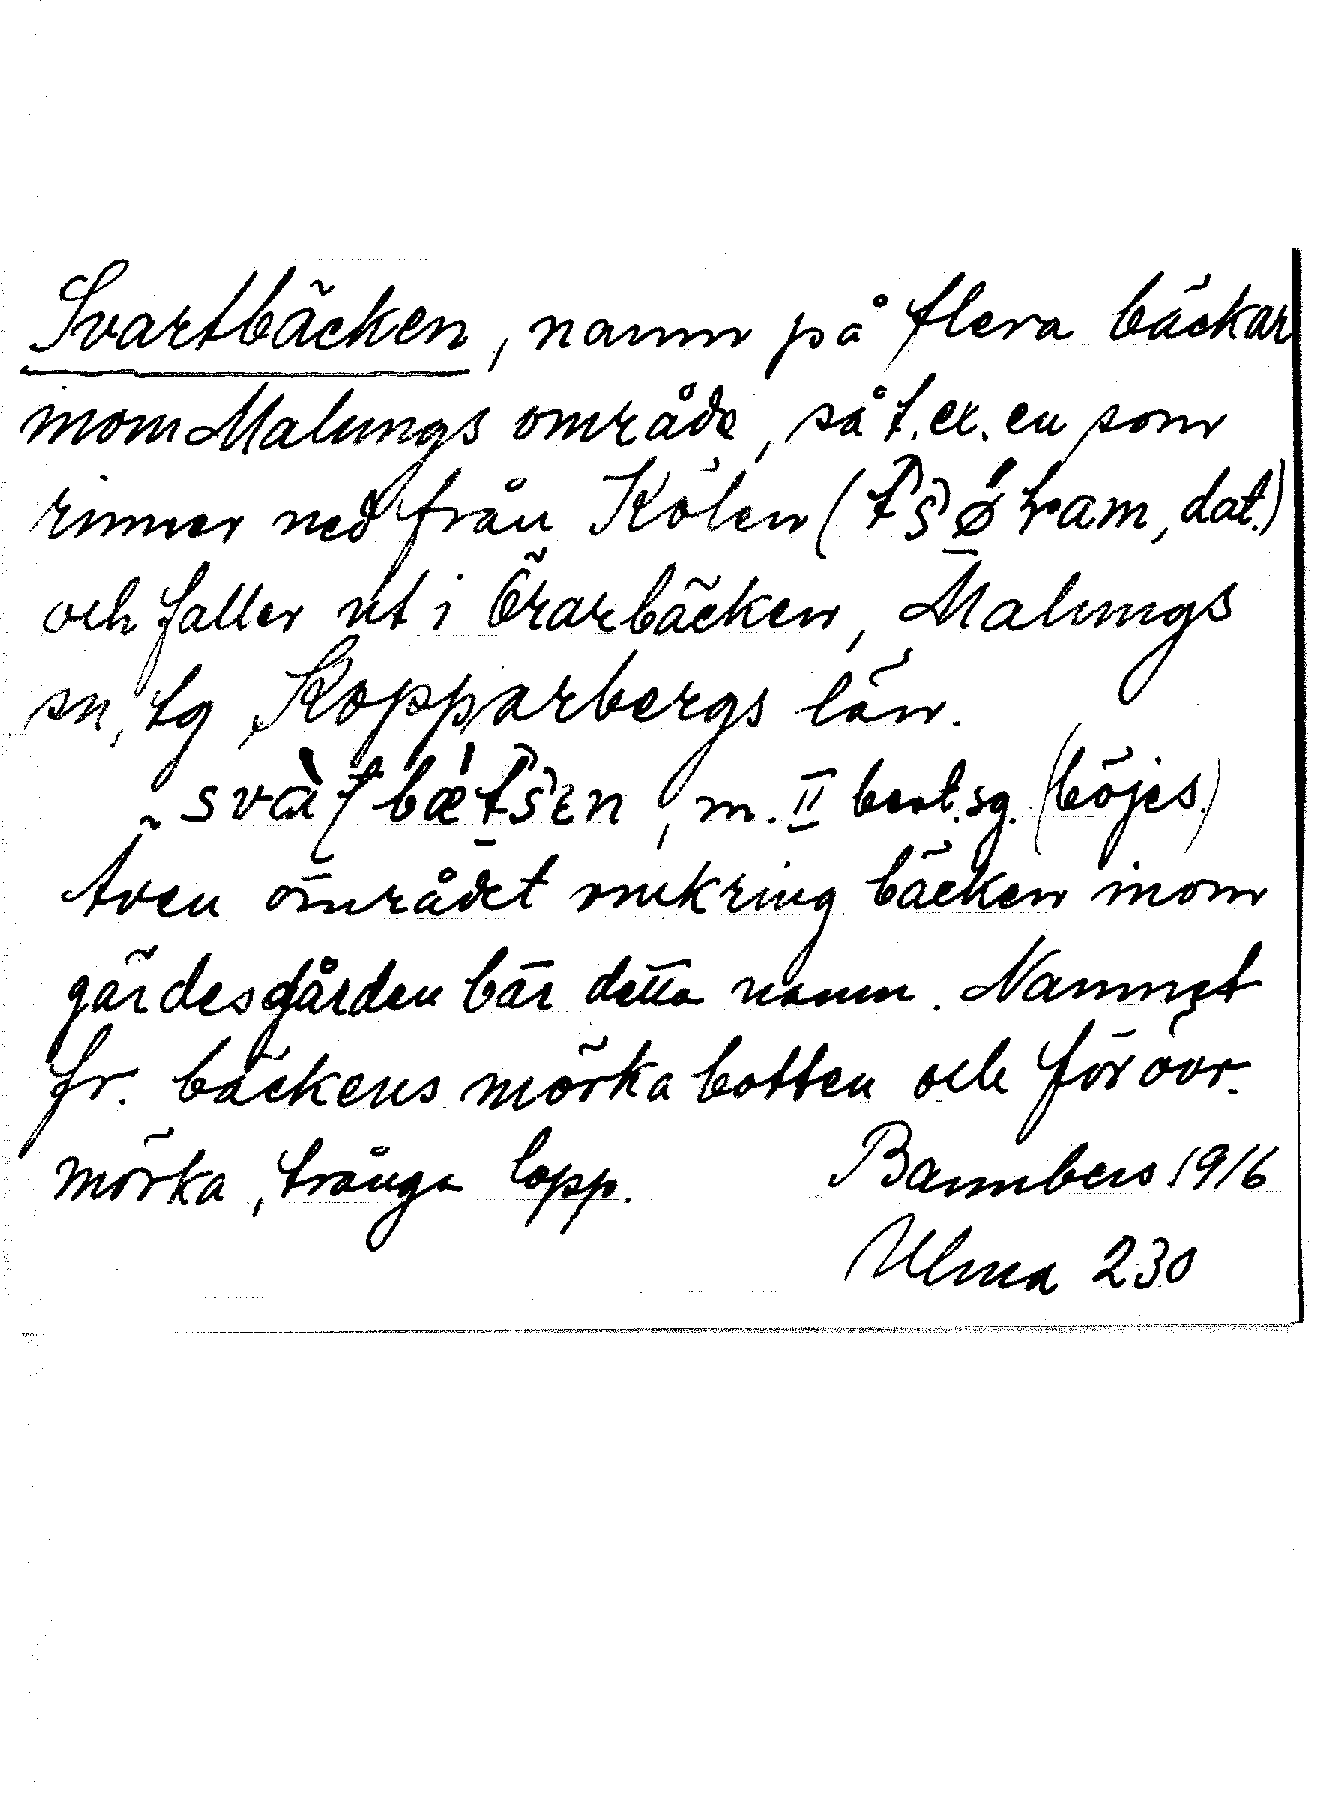 Svartbäcken, namn på flera bäckar
inom Malungs område, så t.ex. en som
rinner ned från Kölen (dat.)
och faller ut i Örarbäcken, Malungs
sn, tg Kopparbergs län.
m. II best.sg. (böjes.)
Även området omkring bäcken inom
gärdesgården bär detta namn. Namnet
fr. bäckens mörka botten och för övr.
mörka, trånga lopp. Bannbers 1916
Ulma 230